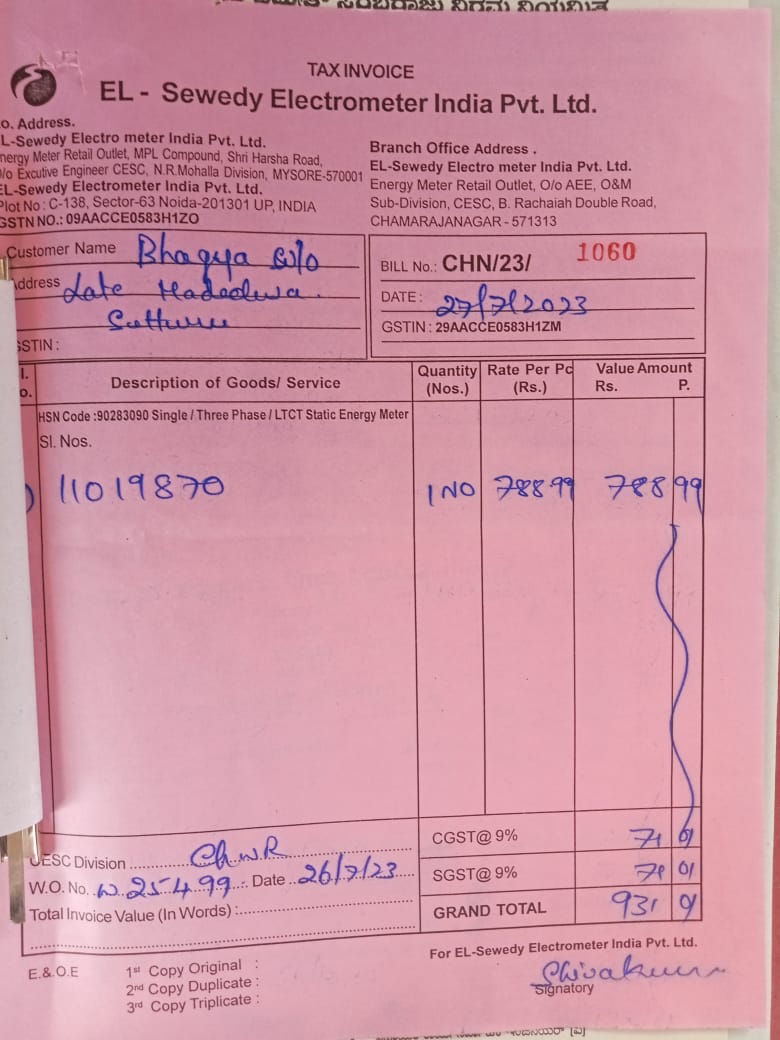 TAX INVOICE
EL - Sewedy Electrometer India Pvt. Ltd.
o. Address.
L-Sewedy Electro meter India Pvt. Ltd.
nergy Meter Retail Outlet, MPL Compound, Shri Harsha Road,
/o Excutive Engineer CESC, N.R.Mohalla Division, MYSORE-570001
EL-Sewedy Electrometer India Pvt. Ltd.
Plot No : C-138, Sector-63 Noida-201301 UP, INDIA
GSTN NO.: 09AACCE0583H1ZO
Branch Office Address .
EL-Sewedy Electro meter India Pvt. Ltd.
Energy Meter Retail Outlet, O/o AEE, O&M
Sub-Division, CESC, B. Rachaiah Double Road,
CHAMARAJANAGAR - 571313
Customer Name Bhagya w/o
Address Late
GSTIN :
BILL No.: CHN/23/ 1060
DATE : 27/7/2023
GSTIN : 29AACCE0583H1ZM
l. o. Description of Goods/ Service Quantity (Nos.) Rate Per Pc (Rs.) Value Amount Rs. P.
HSN Code :90283090 Single / Three Phase / LTCT Static Energy Meter
Sl. Nos.
) 11019870 1 NO 788 99 788 99
CGST@ 9% 71 01
SGST@ 9% 71 01
GRAND TOTAL 931 01
CESC Division Ch.N.R
W.O. No. W.25499 Date 26/7/23
Total Invoice Value (In Words) :
For EL-Sewedy Electrometer India Pvt. Ltd.
Shivakumar
Signatory
E.& O.E
1st Copy Original :
2nd Copy Duplicate :
3rd Copy Triplicate :